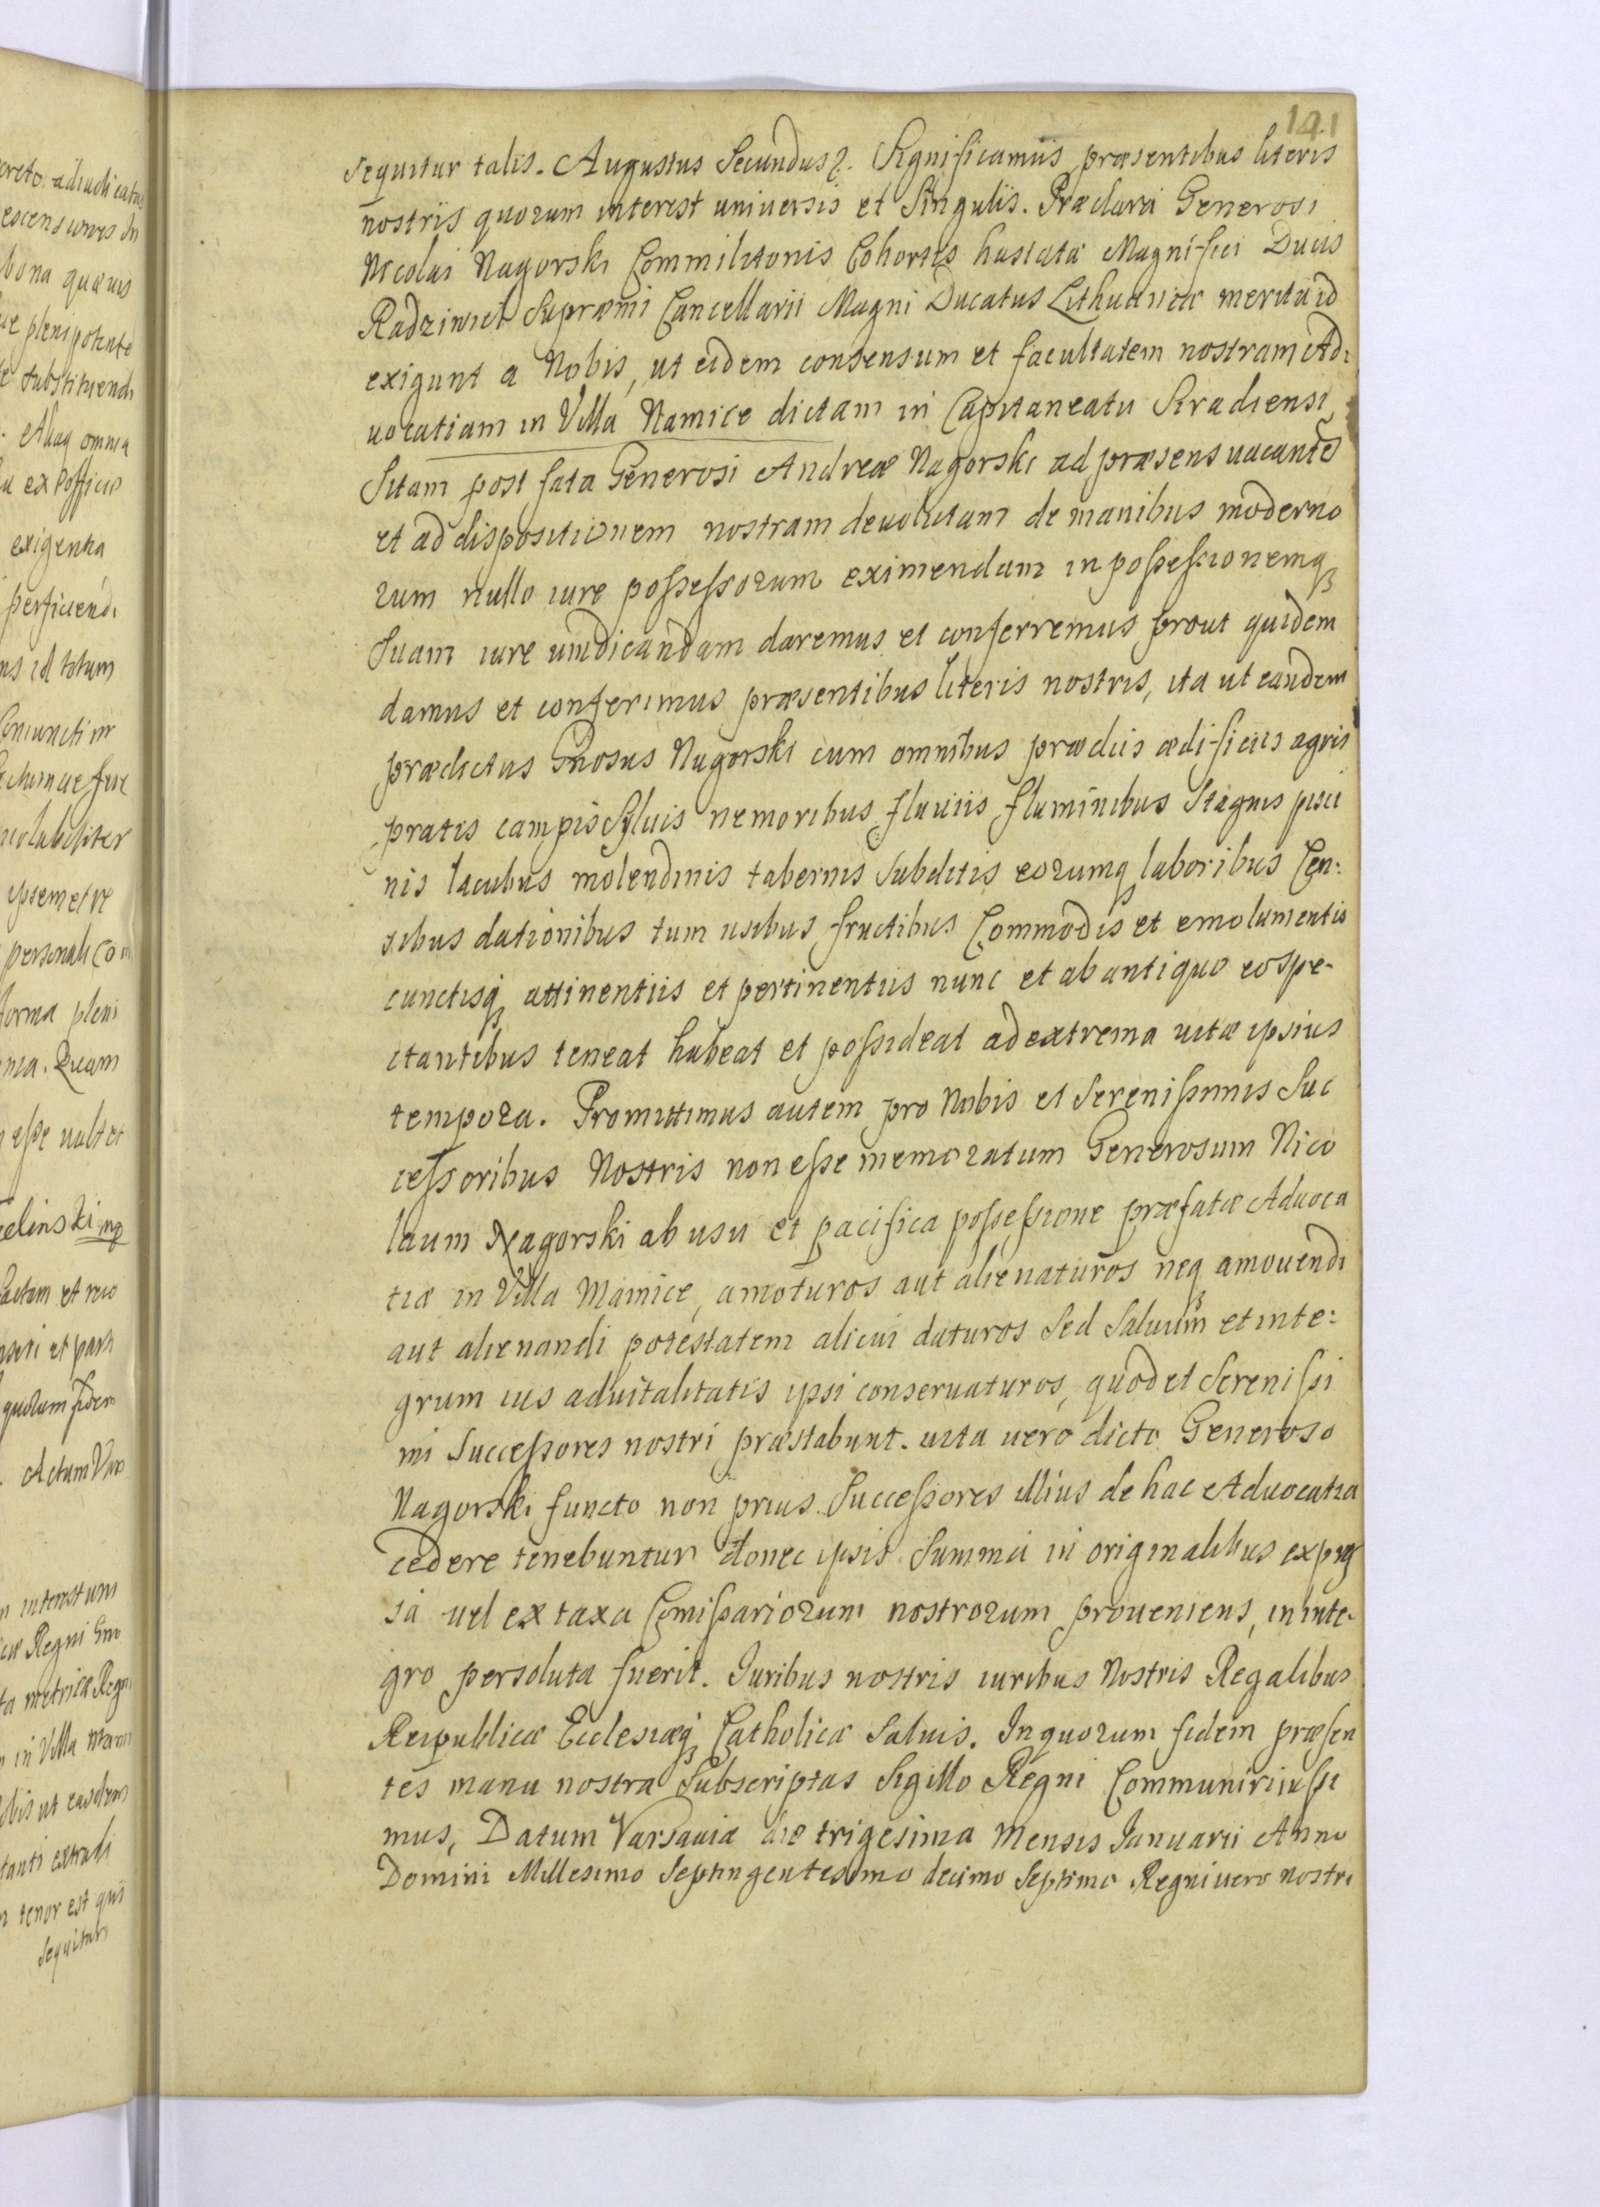 191
sequitur talis. Augustus Secundus &. Significamus præsentibus literis
nostris quorum interest universis et Singulis. Præclara Generosi
Nicolai Nagorski Commilitonis Cohortis hastatæ Magnifici Ducis
Radziwiet Supræmi Cancellarii Magni Ducatus Lithuaniæ merita id
exigunt a Nobis, ut eidem consensum et facultatem nostram Ad:
uocatiam in Villa Namice dictam in Capitaneatu Siradiensi,
Sitam post fata Generosi Andreæ Nagorski ad præsens uacantē
et ad dispositionem nostram deuolutam de manibus moderno
rum nullo iure possessorum eximendam in possessionemq
suam iure uindicandam daremus et conferremus prout quidem
damus et conferimus præsentibus literis nostris, ita ut eandem
prædictus Gnosus Nagorski cum omnibus prædiis ædificiis agris
pratis campis Syluis nemoribus fluuiis fluminibus Stagnis pisci
nis lacubus molendinis tabernis Subditis eorumq laboribus Cen:
sibus dationibus tum usibus fructibus Commodis et emolumentis
cunctisq attinentiis et pertinentiis nunc et ab antiquo eo spe-
ctantibus teneat habeat et possideat ad extrema uitæ ipsius
tempora. Promittimus autem pro Nobis et Serenissimis Suc
cessoribus Nostris non esse memoratum Generosum Nico
laum Nagorski ab usu et pacifica possessione præfatæ Aduoca
tiæ in Villa Mamice, amoturos aut alienaturos neq amouendi
aut alienandi potestatem alicui daturos Sed Saluum et inte:
grum ius aduitalitatis ipsi conseruaturos, quod et Serenissi
mi Successores nostri præstabunt. uita uero dicto Generoso
Nagorski functo non prius Successores illius de hac Aduocatia
cedere tenebuntur donec ipsis Summa in originalibus expres
sa uel ex taxa Comissariorum nostrorum proueniens, in inte-
gro persoluta fuerit. Iuribus nostris iuribus Nostris Regalibus
Reipublicæ Ecclesiæq Catholicæ Saluis. In quorum fidem præsen
tes manu nostra Subscriptas Sigillo Regni Communiri iussi
mus, Datum Varsauiæ die trigesima Mensis Ianuarii Anno
Domini Millesimo Septingentesimo decimo Septimo Regni uero nostri